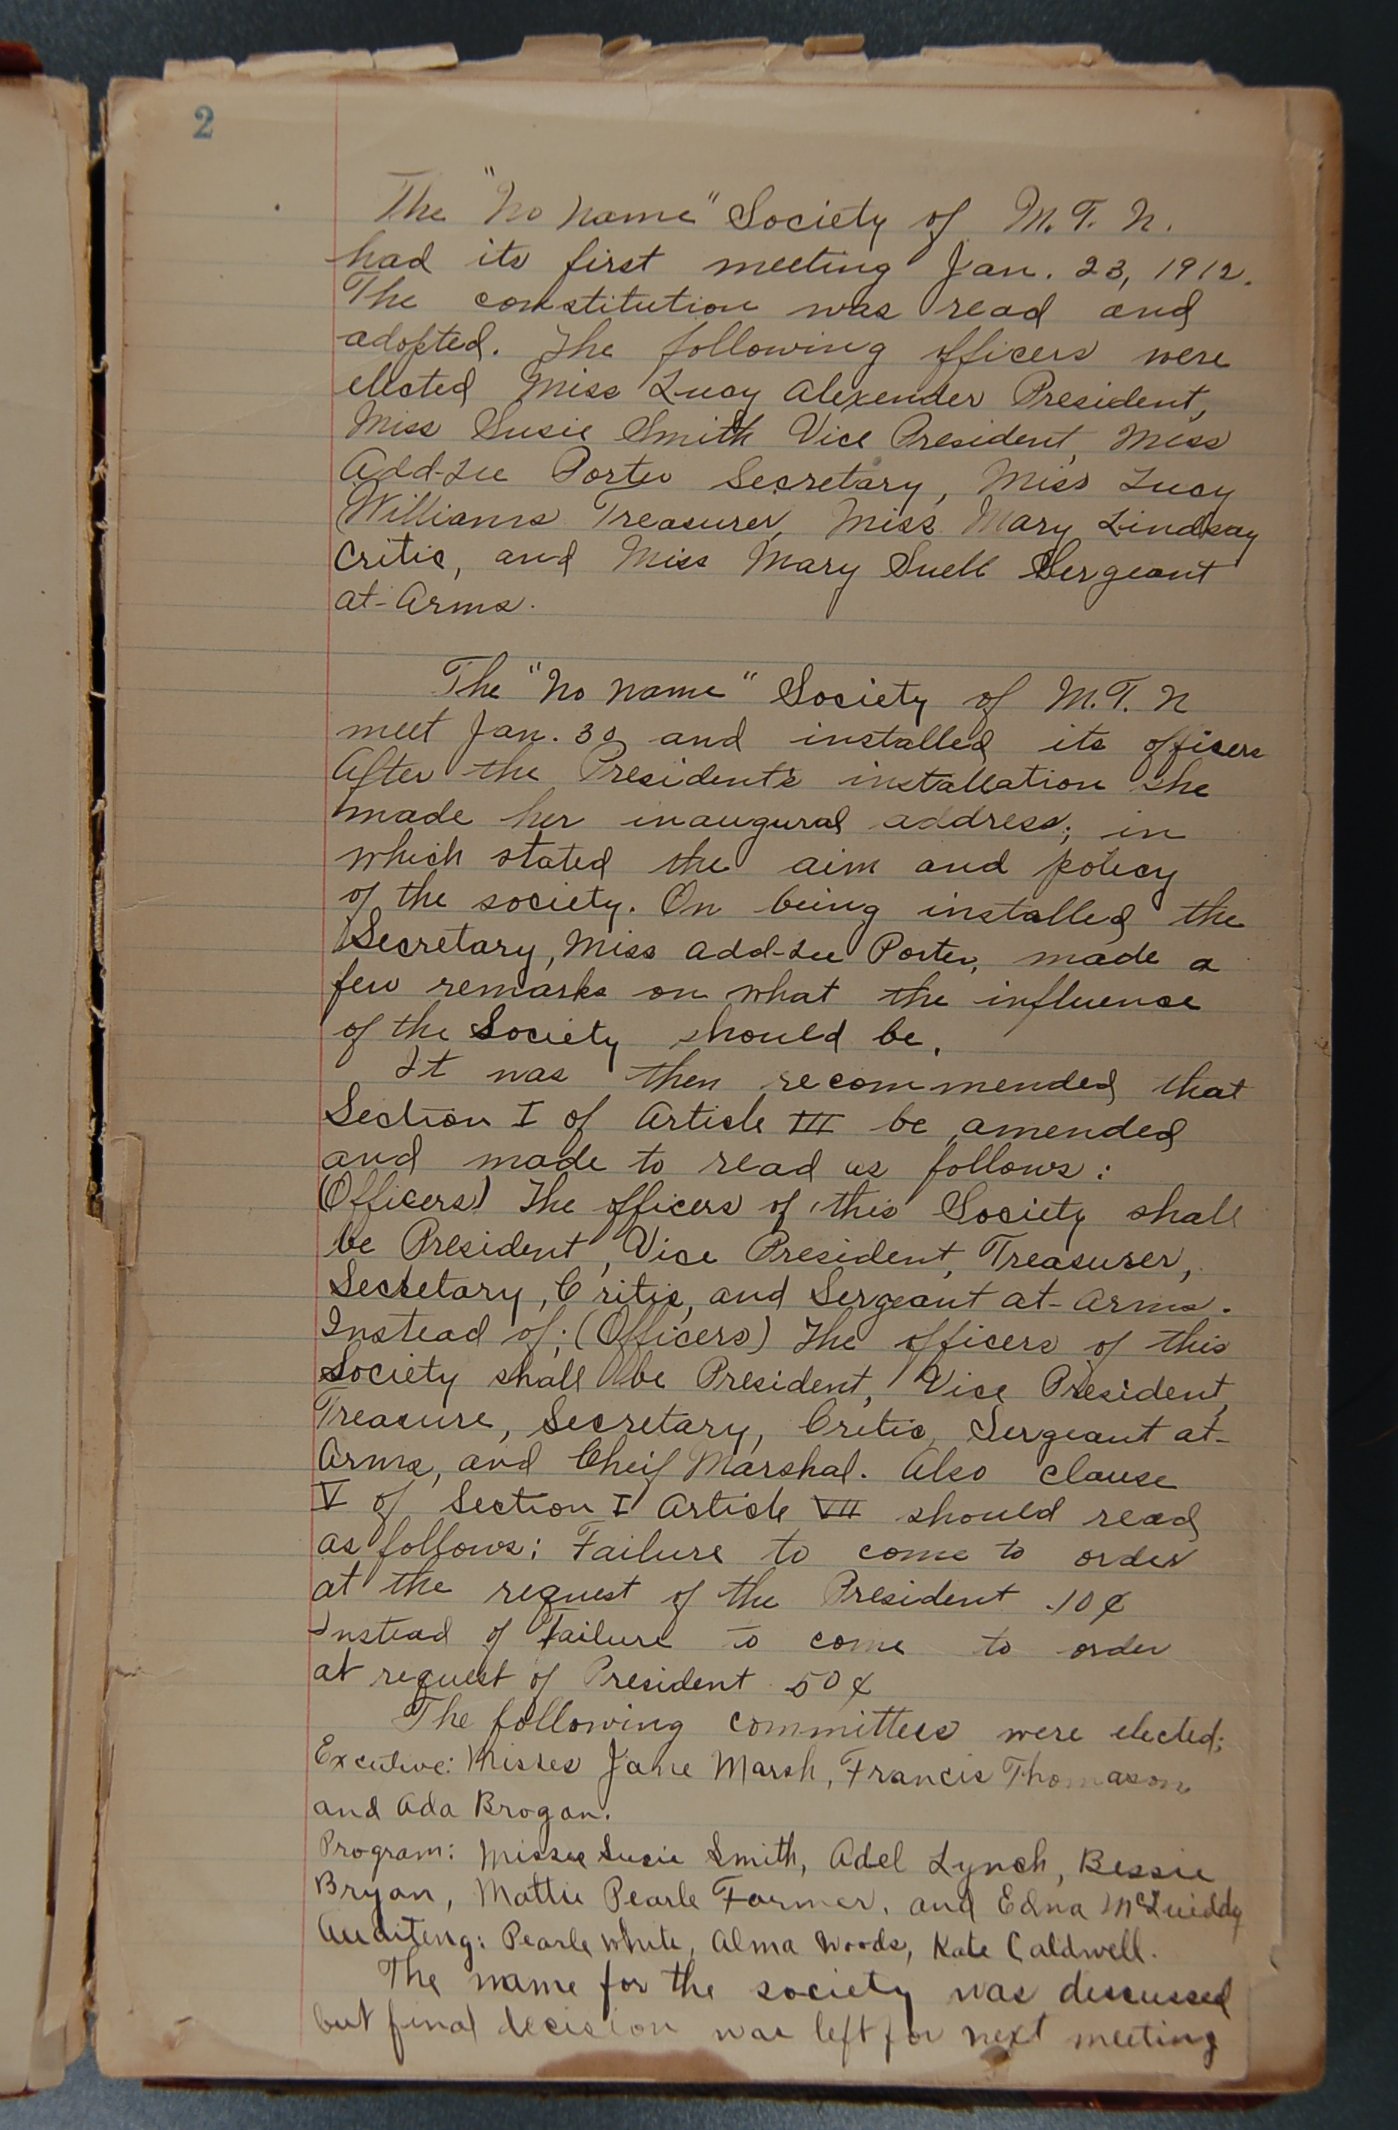 2
The "No Name" Society of M. T. N.
had its first meeting Jan. 23, 1912.
The constitution was read and
adopted. The following officers were
elected Miss Lucy Alexender President,
Miss Susie Smith Vice President, Miss
Add-Lee Porter Secretary, Miss Lucy
Williams Treasurer, Miss Mary Lindsay
Critic, and Miss Mary Suell Sergeant
at-Arms.
The "No Name" Society of M. T. N
meet Jan. 30 and installed its officers
After the President's installation she
made her inaugural address; in
which stated the aim and policy
of the society. On being installed the
Secretary, Miss Add-Lee Porter, made a
few remarks on what the influence
of the Society should be.
It was then recommended that
Section I of Article III be amended
and made to read as follows:
(Officers) The officers of this Society shall
be President, Vice President, Treasurer,
Secretary, Critic, and Sergeant at-Arms.
Instead of; (Officers) The officers of this
Society shall be President, Vice President,
Treasure, Secretary, Critic, Sergeant at-
Arms, and Cheif Marshal. Also clause
V of Section I Article VII should read
as follows: Failure to come to order
at the request of the President .10¢
Instead of Failure to come to order
at request of President 50¢
The following committees were elected;
Excutive: Misses Janie Marsh, Francis Thomason
and Ada Brogan.
Program: Misses Susie Smith, Adel Lynch, Bessie
Bryan, Mattie Pearle Farmer, and Edna McQuiddy
Auditing: Pearle White, Alma Woods, Kate Caldwell.
The name for the society was discussed
but final decision was left for next meeting